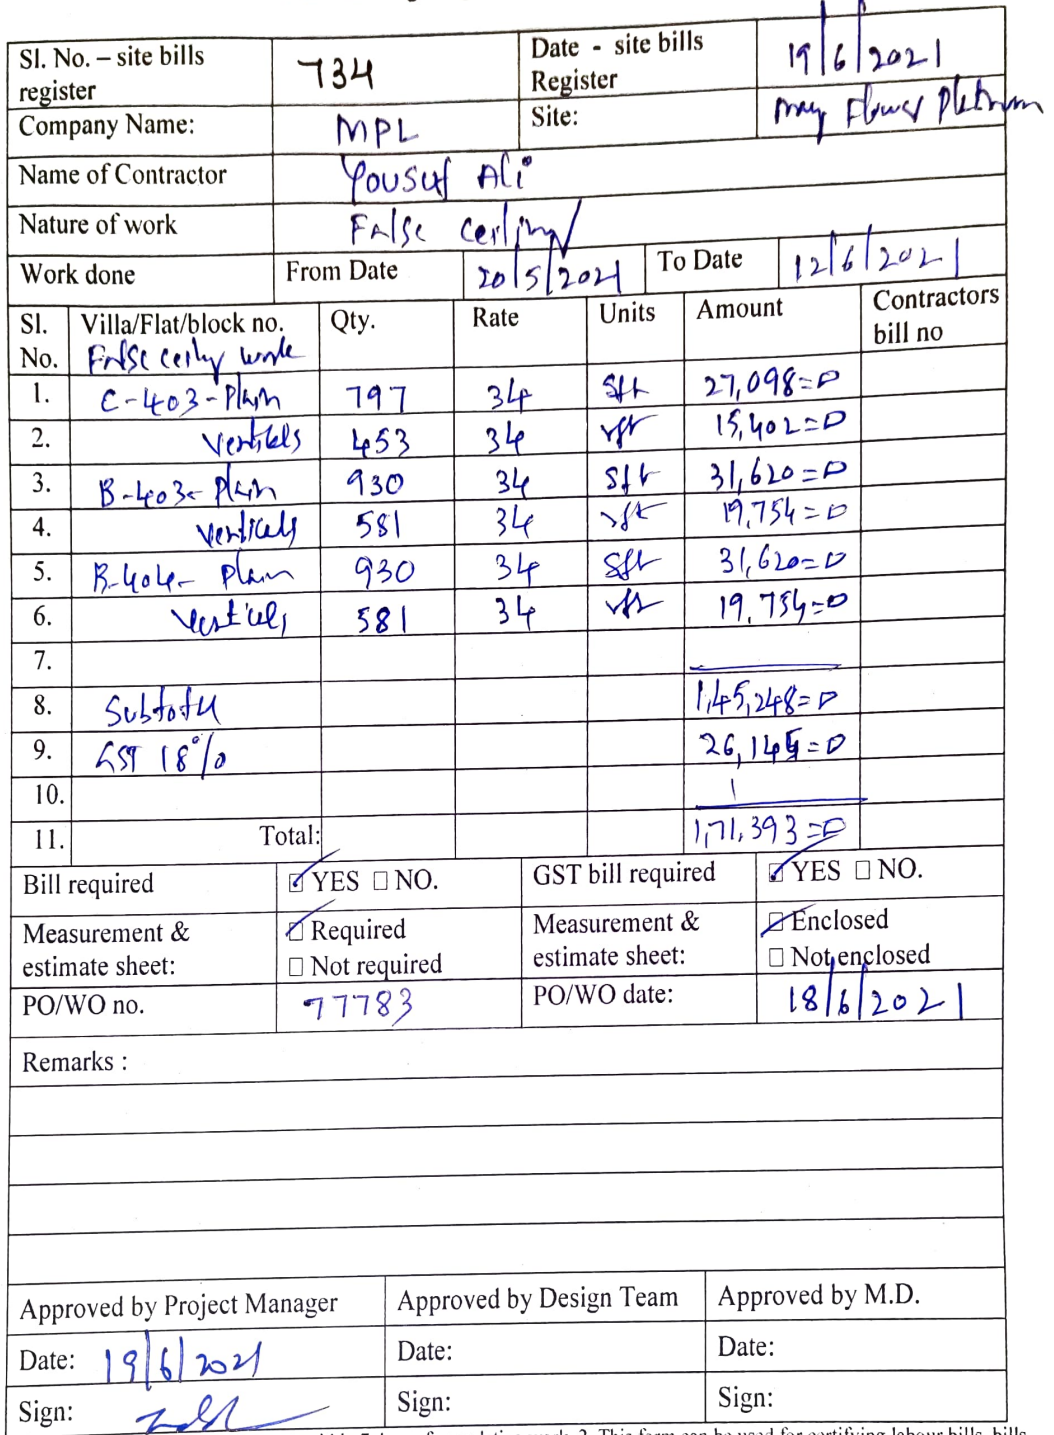 Sl. No. – site bills register 734 Date - site bills Register 19/6/2021
Company Name: MPL Site: may Flower Platinum
Name of Contractor Yousuf Ali
Nature of work False ceiling
Work done From Date 20/5/2021 To Date 12/6/2021
Sl. No. Villa/Flat/block no. Qty. Rate Units Amount Contractors bill no
False ceiling work
1. C-403-Plain 797 34 sft 27,098=0
2. verticals 453 34 rft 15,402=0
3. B-403-Plain 930 34 sft 31,620=0
4. verticals 581 34 rft 19,754=0
5. B-404-Plain 930 34 sft 31,620=0
6. verticals 581 34 rft 19,754=0
7.
8. Subtotal 1,45,248=0
9. GST 18% 26,145=0
10.
11. Total: 1,71,393=0
Bill required ☑ YES ☐ NO. GST bill required ☑ YES ☐ NO.
Measurement & estimate sheet: ☑ Required ☐ Not required Measurement & estimate sheet: ☑ Enclosed ☐ Not enclosed
PO/WO no. 77783 PO/WO date: 18/6/2021
Remarks :
Approved by Project Manager Approved by Design Team Approved by M.D.
Date: 19/6/2021 Date: Date:
Sign: Sign: Sign: